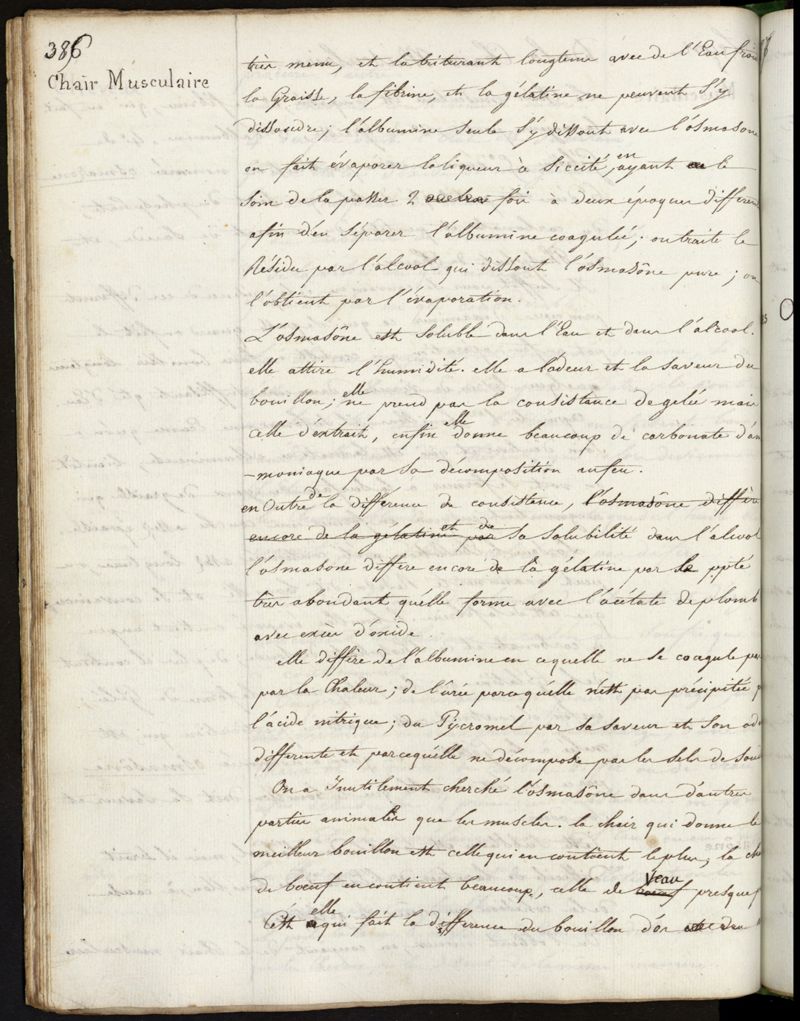 386
Chair Musculaire
très menu, et la triturant longtems avec de l'Eau froi
la Graisse, la fibrine, et la gélatine ne peuvent s'y
dissoudre; l'albumine seule s'y dissout avec l'osmasone
on fait évaporer la liqueur à siccité, en ayant le
soin de la passer 2 fois à deux époques differen
afin d'en séparer l'albumine coagulée; on traite le
Résidu par l'alcool qui dissout l'osmasône pure; on
l'obtient par l'évaporation.
L'osmasône est soluble dans l'Eau et dans l'alcool.
elle attire l'humidité. elle a l'odeur et la saveur du
bouillon; elle ne prend pas la consistance de gelée mais
celle d'extrait, enfin elle donne beaucoup de carbonate d'am
-moniaque par sa décomposition au feu.
en Outre de la différence de consistence, l'osmasône diffère
encore de la gélatine et de par sa solubilité dans l'alcool
l'osmasone differe encore de la gélatine par le ppté
très abondant qu'elle forme avec l'acétate de plomb
avec excès d'oxide.
elle diffère de l'albumine en ce qu'elle ne se coagule pas
par la Chaleur; de l'urée parce qu'elle n'est pas précipitée p
l'acide nitrique; du Pycromel par sa saveur et son ode
differente et parce qu'elle ne décompose pas les sels de
On a Inutilement cherché l'osmasône dans d'autres
parties animales que les muscles. la chair qui donne le
meilleur bouillon est celle qui en contient le plus, la ch
de bœuf en contient beaucoup, celle de bœuf veau presque
C'est elle qui fait la différence du bouillon d'os du